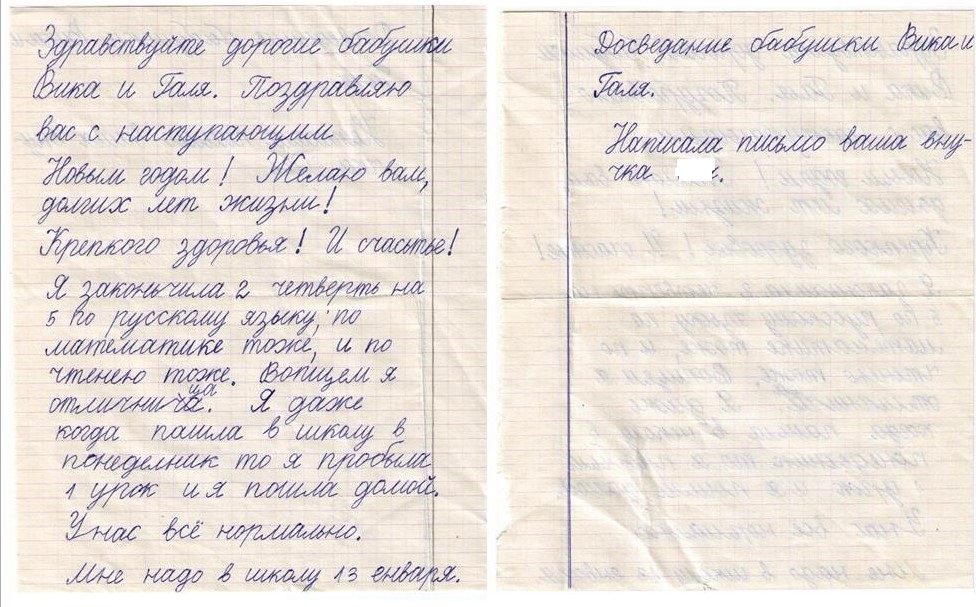 Здравствуйте дорогие бабушки
Вика и Галя. Поздравляю
вас с наступающим
Новым годом! Желаю вам,
долгих лет жизни!
Крепкого здоровья! И счастье!
Я законьчила 2 четверть на
5 по русскому языку, по
математике тоже, и по
чтенею тоже. Вопщем я
отличница. Я даже
когда пашла в школу в
понеделник то я пробыла
1 урок и я пошла домой.
У нас всё нормально.
Мне надо в школу 13 енваря.
Досведание бабушки Вика и
Галя.
Написала письмо ваша вну-
чка